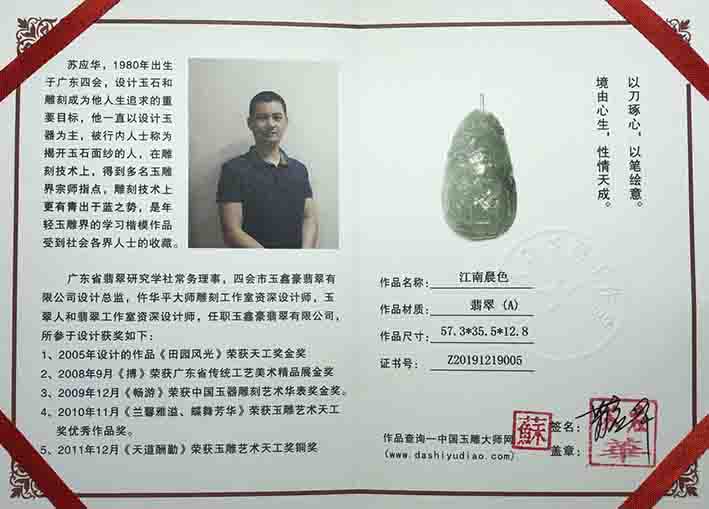 苏应华，1980年出生
于广东四会，设计玉石和
雕刻成为他人生追求的重
要目标，他一直以设计玉
器为主，被行内人士称为
揭开玉石面纱的人，在雕
刻技术上，得到多名玉雕
界宗师指点，雕刻技术上
更有青出于蓝之势，是年
轻玉雕界的学习楷模作品
受到社会各界人士的收藏。
广东省翡翠研究学社常务理事，四会市玉鑫豪翡翠有
限公司设计总监，仵华平大师雕刻工作室资深设计师，玉
翠人和翡翠工作室资深设计师，任职玉鑫豪翡翠有限公司，
所参于设计获奖如下：
1、2005年设计的作品《田园风光》荣获天工奖金奖
2、2008年9月《搏》荣获广东省传统工艺美术精品展金奖
3、2009年12月《畅游》荣获中国玉器雕刻艺术华表奖金奖。
4、2010年11月《兰馨雅溢、蝶舞芳华》荣获玉雕艺术天工
奖优秀作品奖。
5、2011年12月《天道酬勤》荣获玉雕艺术天工奖铜奖
以刀琢心，以笔绘意。
境由心生，性情天成。
作品名称：江南晨色
作品材质：翡翠（A）
作品尺寸：57.3*35.5*12.8
证书号：Z20191219005
作品查询一中国玉雕大师网
(www.dashiyudiao.com)
蘇
签名：
盖章：
華